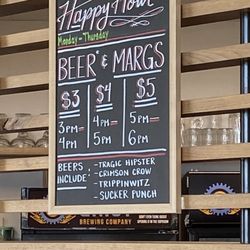 Happy Hour
Monday - Thursday
BEER* & MARGS
$3 $4 $5
3pm 4pm 5pm
4pm 5pm 6pm
BEERS INCLUDE:
- TRAGIC HIPSTER
- CRIMSON CROW
- TRIPPINWITZ
- SUCKER PUNCH
BREWING COMPANY